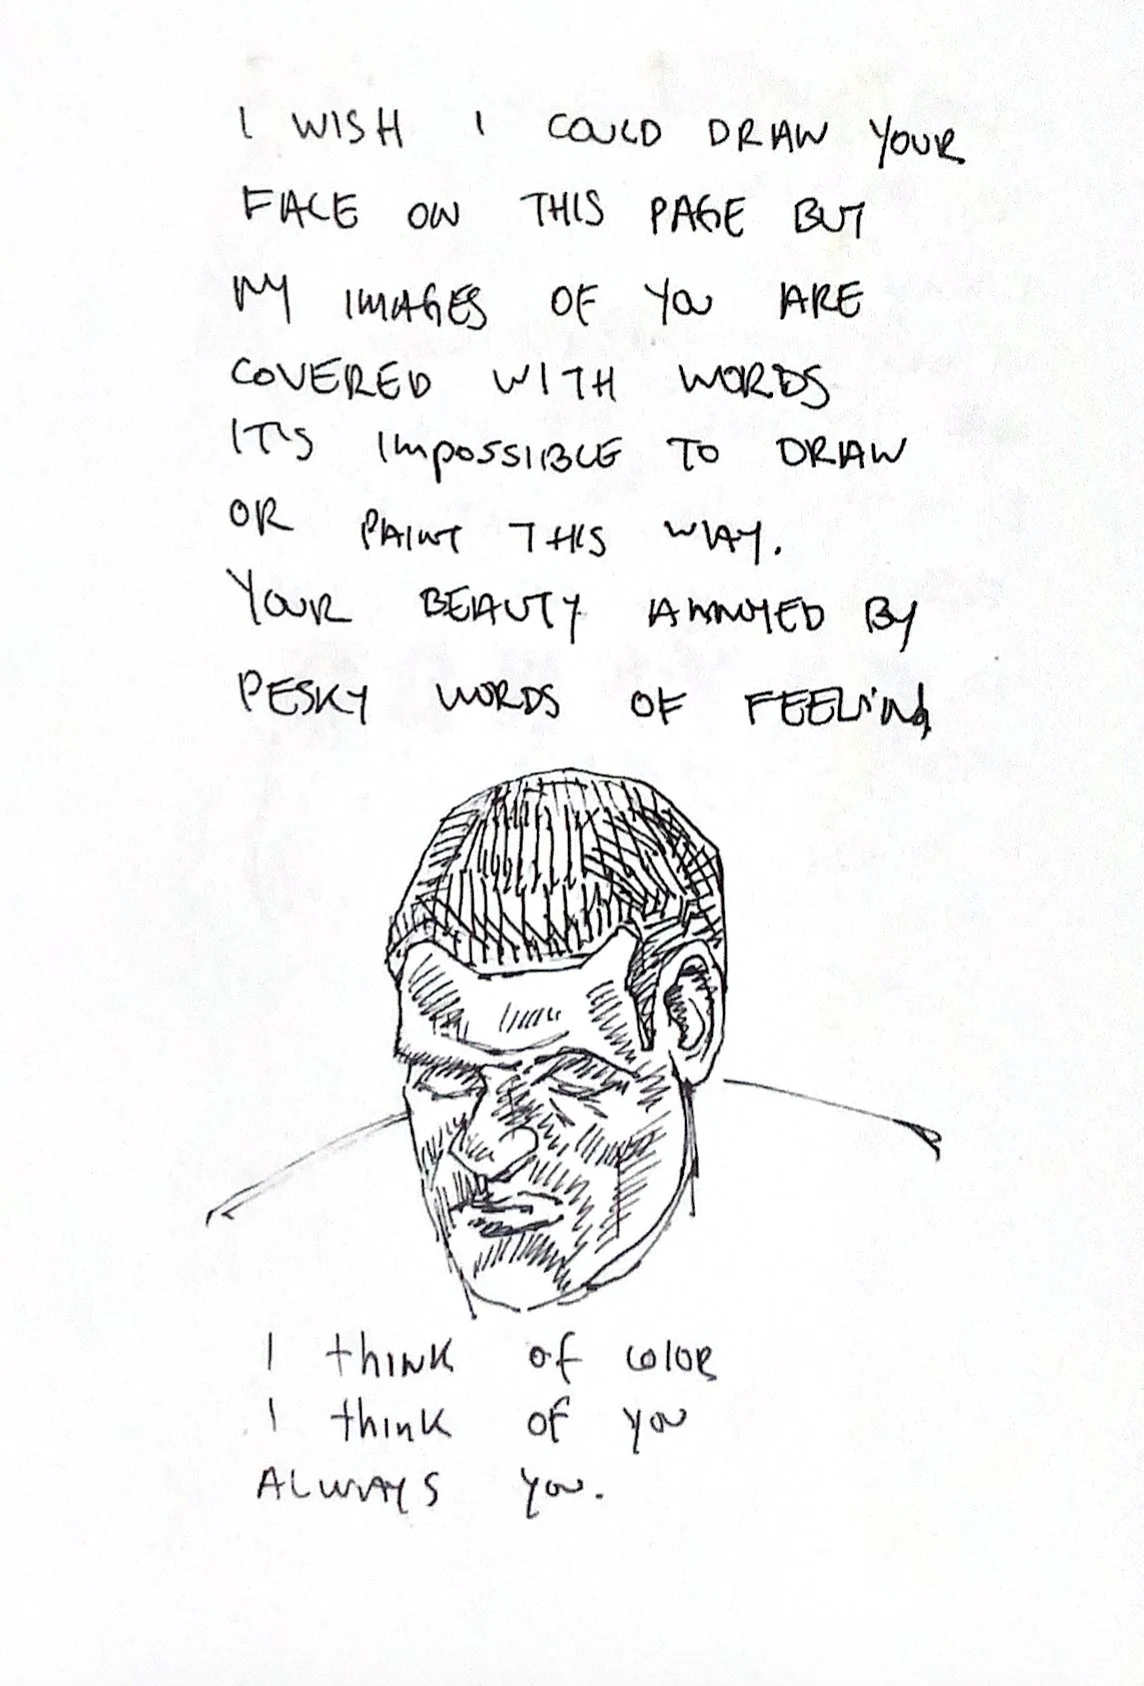 I WISH I COULD DRAW YOUR
FACE ON THIS PAGE BUT
MY IMAGES OF YOU ARE
COVERED WITH WORDS
IT'S IMPOSSIBLE TO DRAW
OR PAINT THIS WAY.
YOUR BEAUTY ANNOYED BY
PESKY WORDS OF FEELING
I think of color
I think of you
ALWAYS you.